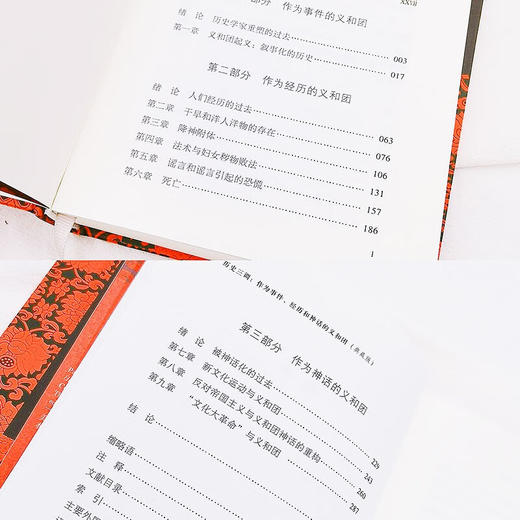 xxvii
部分 作为事件的义和团
绪 论 历史学家重塑的过去 003
第一章 义和团起义：叙事化的历史 017
第二部分 作为经历的义和团
绪 论 人们经历的过去 063
第二章 干旱和洋人洋物的存在 076
第三章 降神附体
第四章 法术与妇女秽物败法 106
第五章 谣言和谣言引起的恐慌 131
第六章 死亡 157
186
1
历史三调：作为事件、经历和神话的义和团（典藏版）
第三部分 作为神话的义和团
绪 论 被神话化的过去
第七章 新文化运动与义和团
第八章 反对帝国主义与义和团神话的重构 229
第九章 “文化大革命”与义和团 243
结 论 260
缩略语 287
注 释
文献目录
索 引
主要外